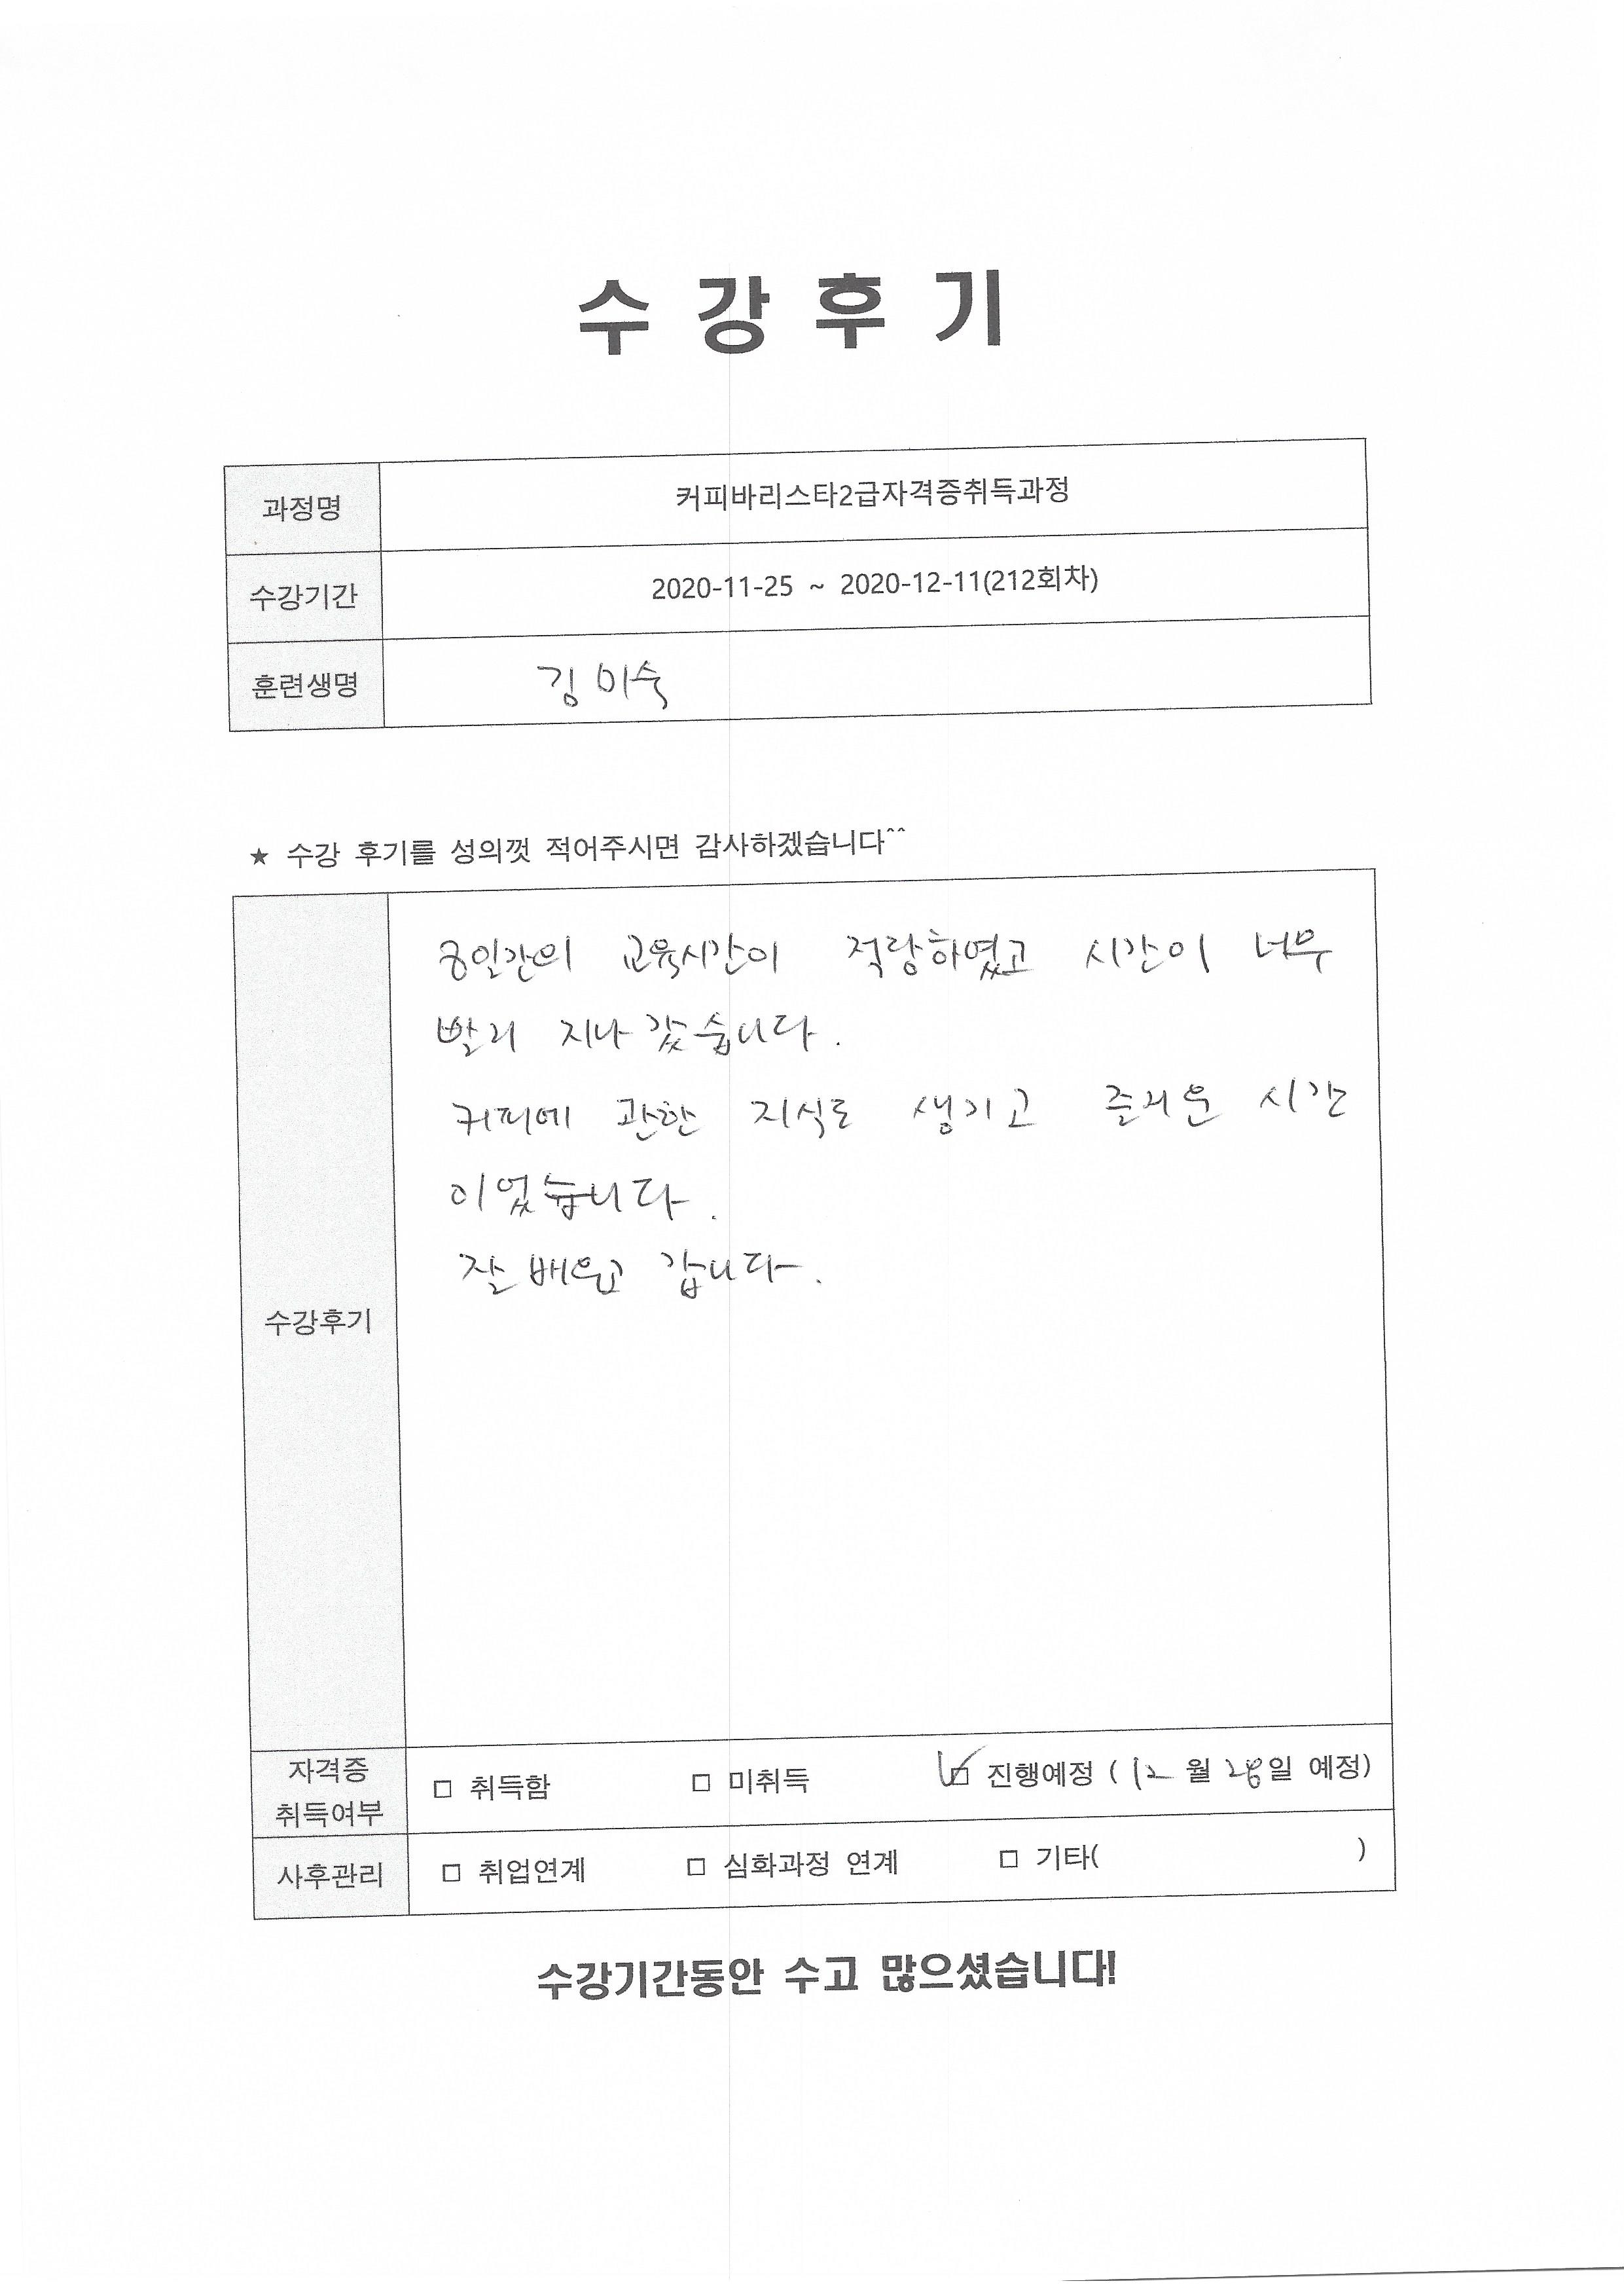 수 강 후 기
과정명 커피바리스타2급자격증취득과정
수강기간 2020-11-25 ~ 2020-12-11(212회차)
훈련생명 김미숙
★ 수강 후기를 성의껏 적어주시면 감사하겠습니다^^
교육시간이 적당하였고 시간이 너무
빨리 지나 갔습니다.
커피에 관한 지식도 생기고 즐거운 시간
이었습니다.
수강후기
잘 배우고 갑니다.
자격증 취득여부 □ 취득함 □ 미취득 ☑ 진행예정 ( 12 월 28일 예정)
사후관리 □ 취업연계 □ 심화과정 연계 □ 기타( )
수강기간동안 수고 많으셨습니다!